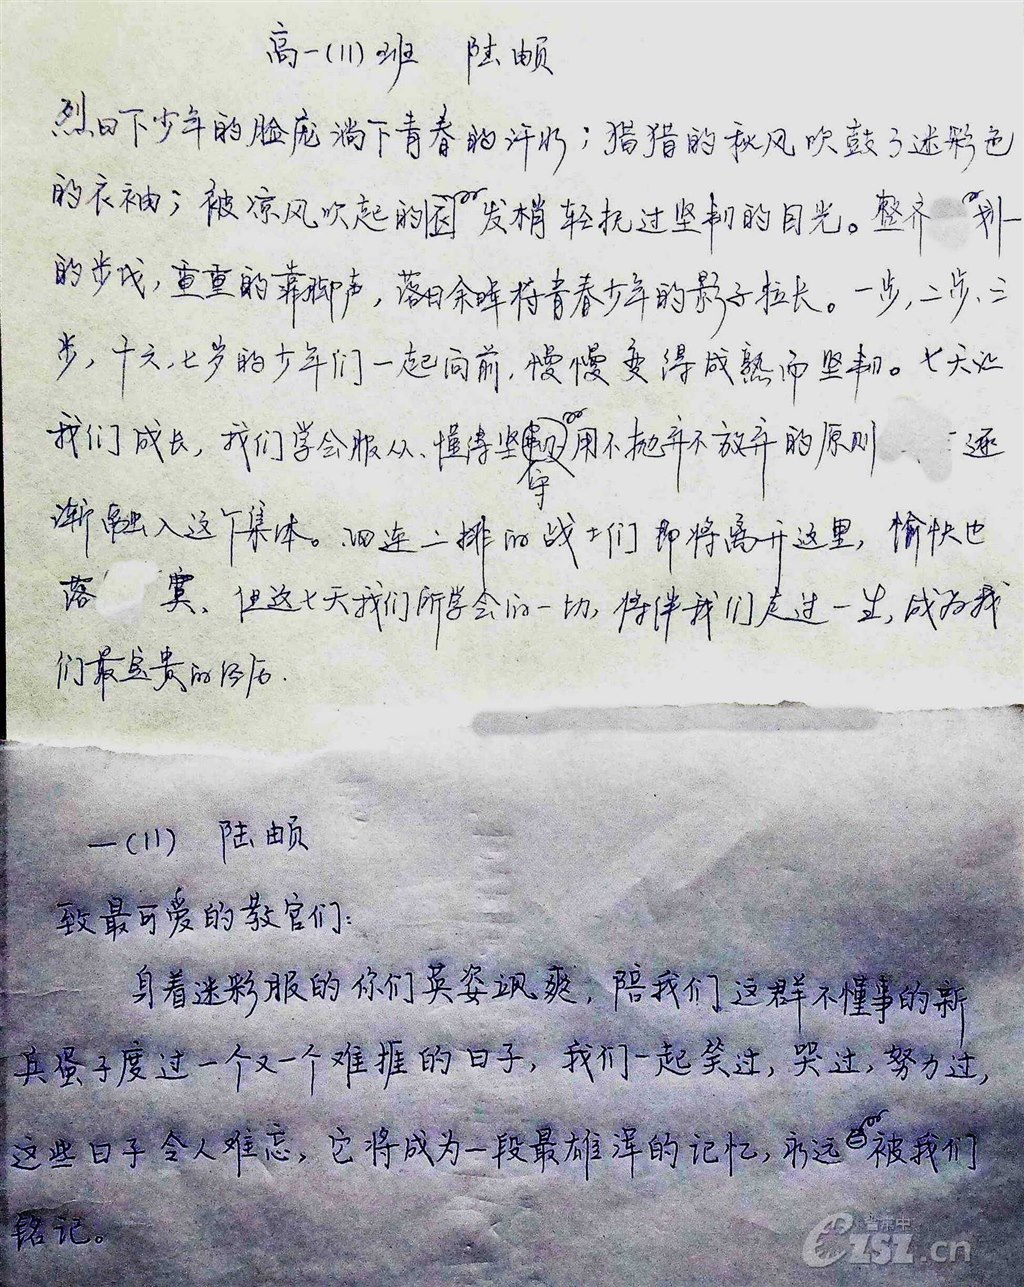 高一(11)班 陆頔
烈日下少年的脸庞淌下青春的汗水；猎猎的秋风吹鼓了迷彩色
的衣袖；被凉风吹起的发梢轻抚过坚韧的目光。整齐划一
的步伐，重重的靠脚声，落日余晖将青春少年的影子拉长。一步，二步、三
步，十六、七岁的少年们一起向前，慢慢变得成熟而坚韧。七天让
我们成长，我们学会服从、懂得坚守用不抛弃不放弃的原则逐
渐融入这个集体。四连二排的战士们即将离开这里，愉快也
落寞、但这七天我们所学会的一切，将伴我们走过一生，成为我
们最宝贵的经历.
一(11) 陆頔
致最可爱的教官们：
身着迷彩服的你们英姿飒爽，陪我们这群不懂事的新
兵蛋子度过一个又一个难捱的日子，我们一起笑过，哭过，努力过，
这些日子令人难忘，它将成为一段最雄浑的记忆，永远被我们
铭记。
ezsz.cn